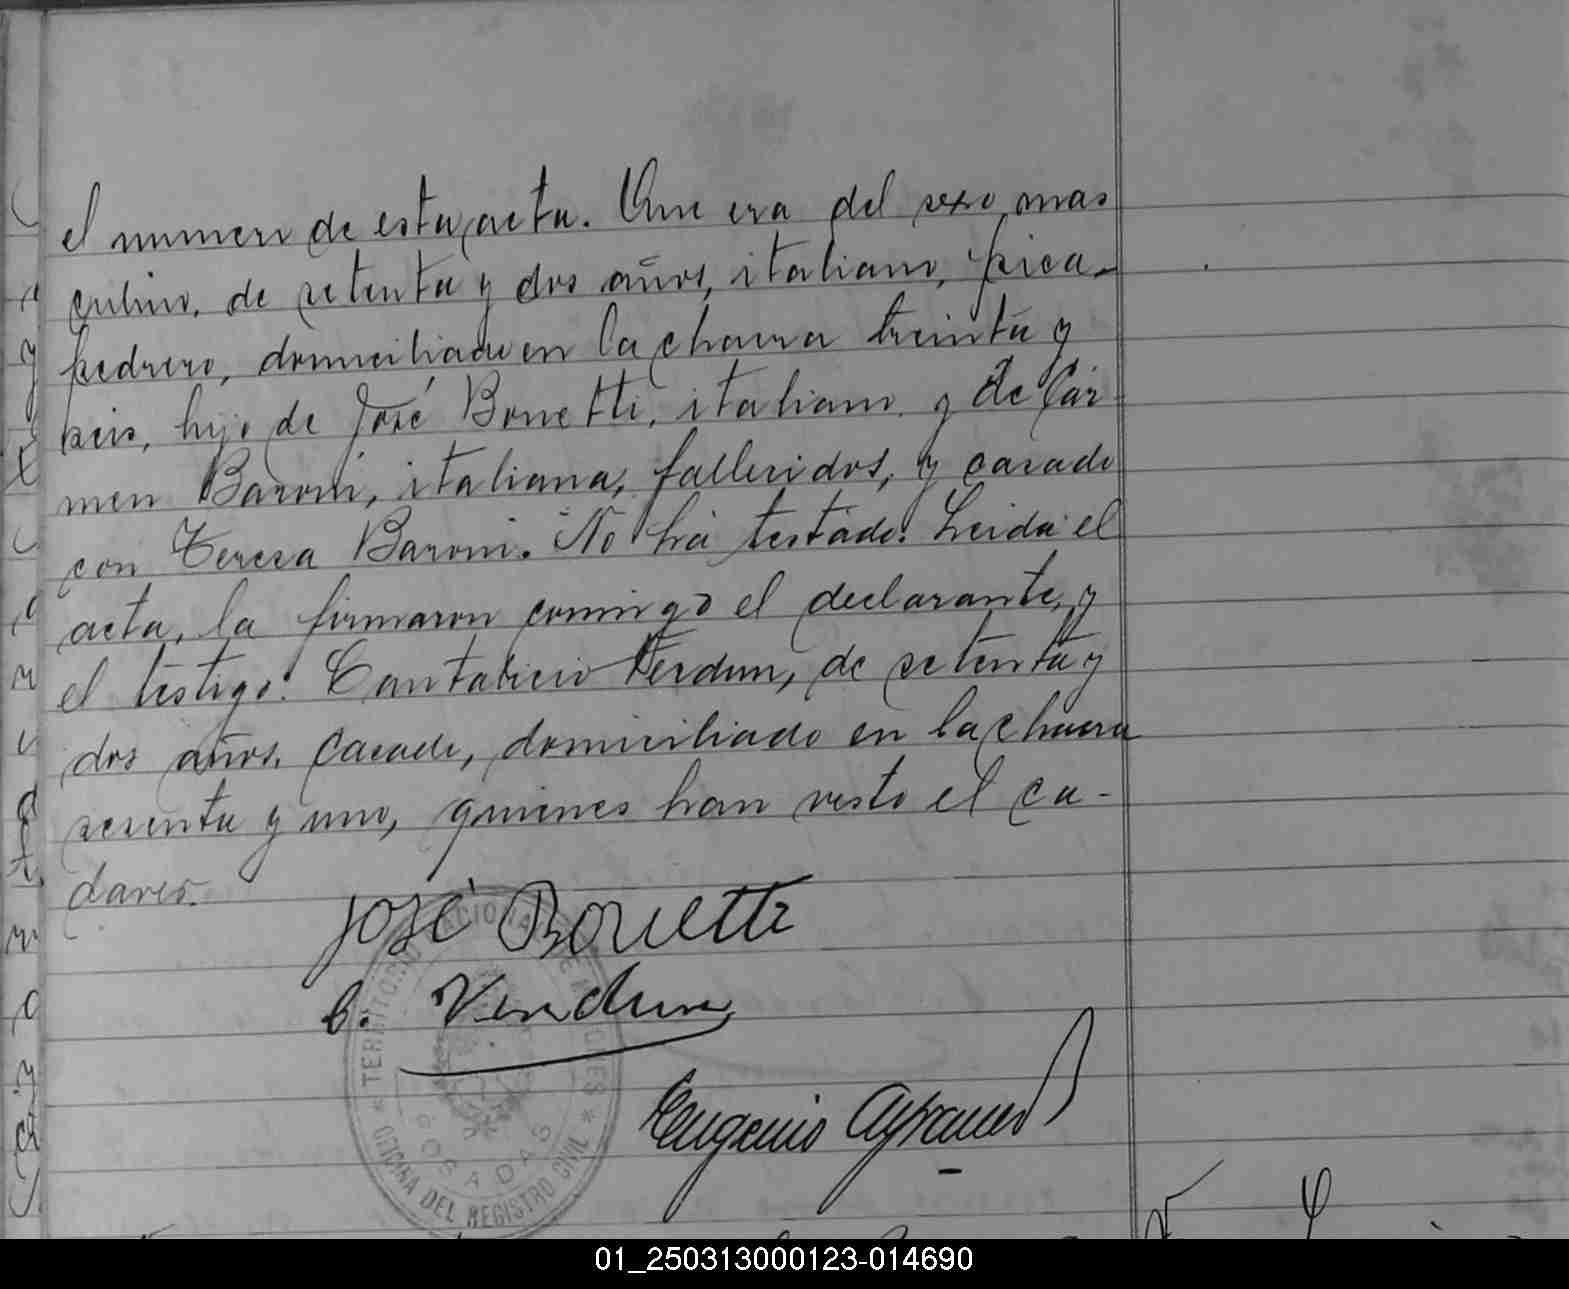 el numero de esta acta. Que era del sexo mas
culino, de setenta y dos años, italiano, pica-
pedrero, domiciliado en la chacra treinta y
seis, hijo de José Bonetti, italiano y de Cár-
men Baroni, italiana, fallecidos, y casado
con Teresa Baroni. No há testádo. Leida el
acta, la firmaron conmigo el declarante, y
el testigo: Cantalicio Verdun, de setenta y
dos años, casado, domiciliado en la chacra
sesenta y uno, quienes han visto el ca-
daver.
José Bonetti
C. Verdun
Eugenio
TERRITORIO NACIONAL DE MISIONES
POSADAS
OFICINA DEL REGISTRO CIVIL
01_250313000123-014690